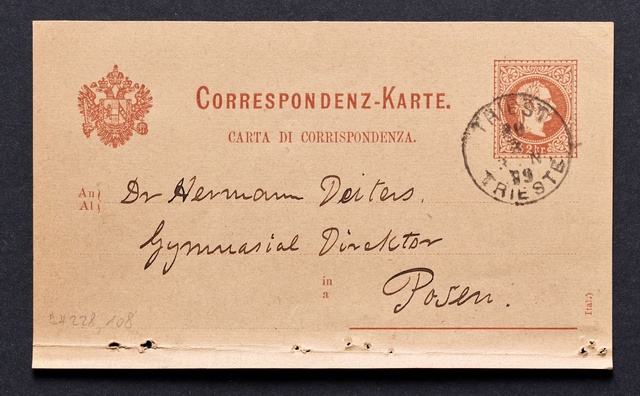 CORRESPONDENZ-KARTE.
CARTA DI CORRISPONDENZA.
2 kr.
TRIEST
TRIESTE
An
Al
Dr Hermann Deiters.
Gymnasial Direktor
in
a
Posen.
(Ital.)